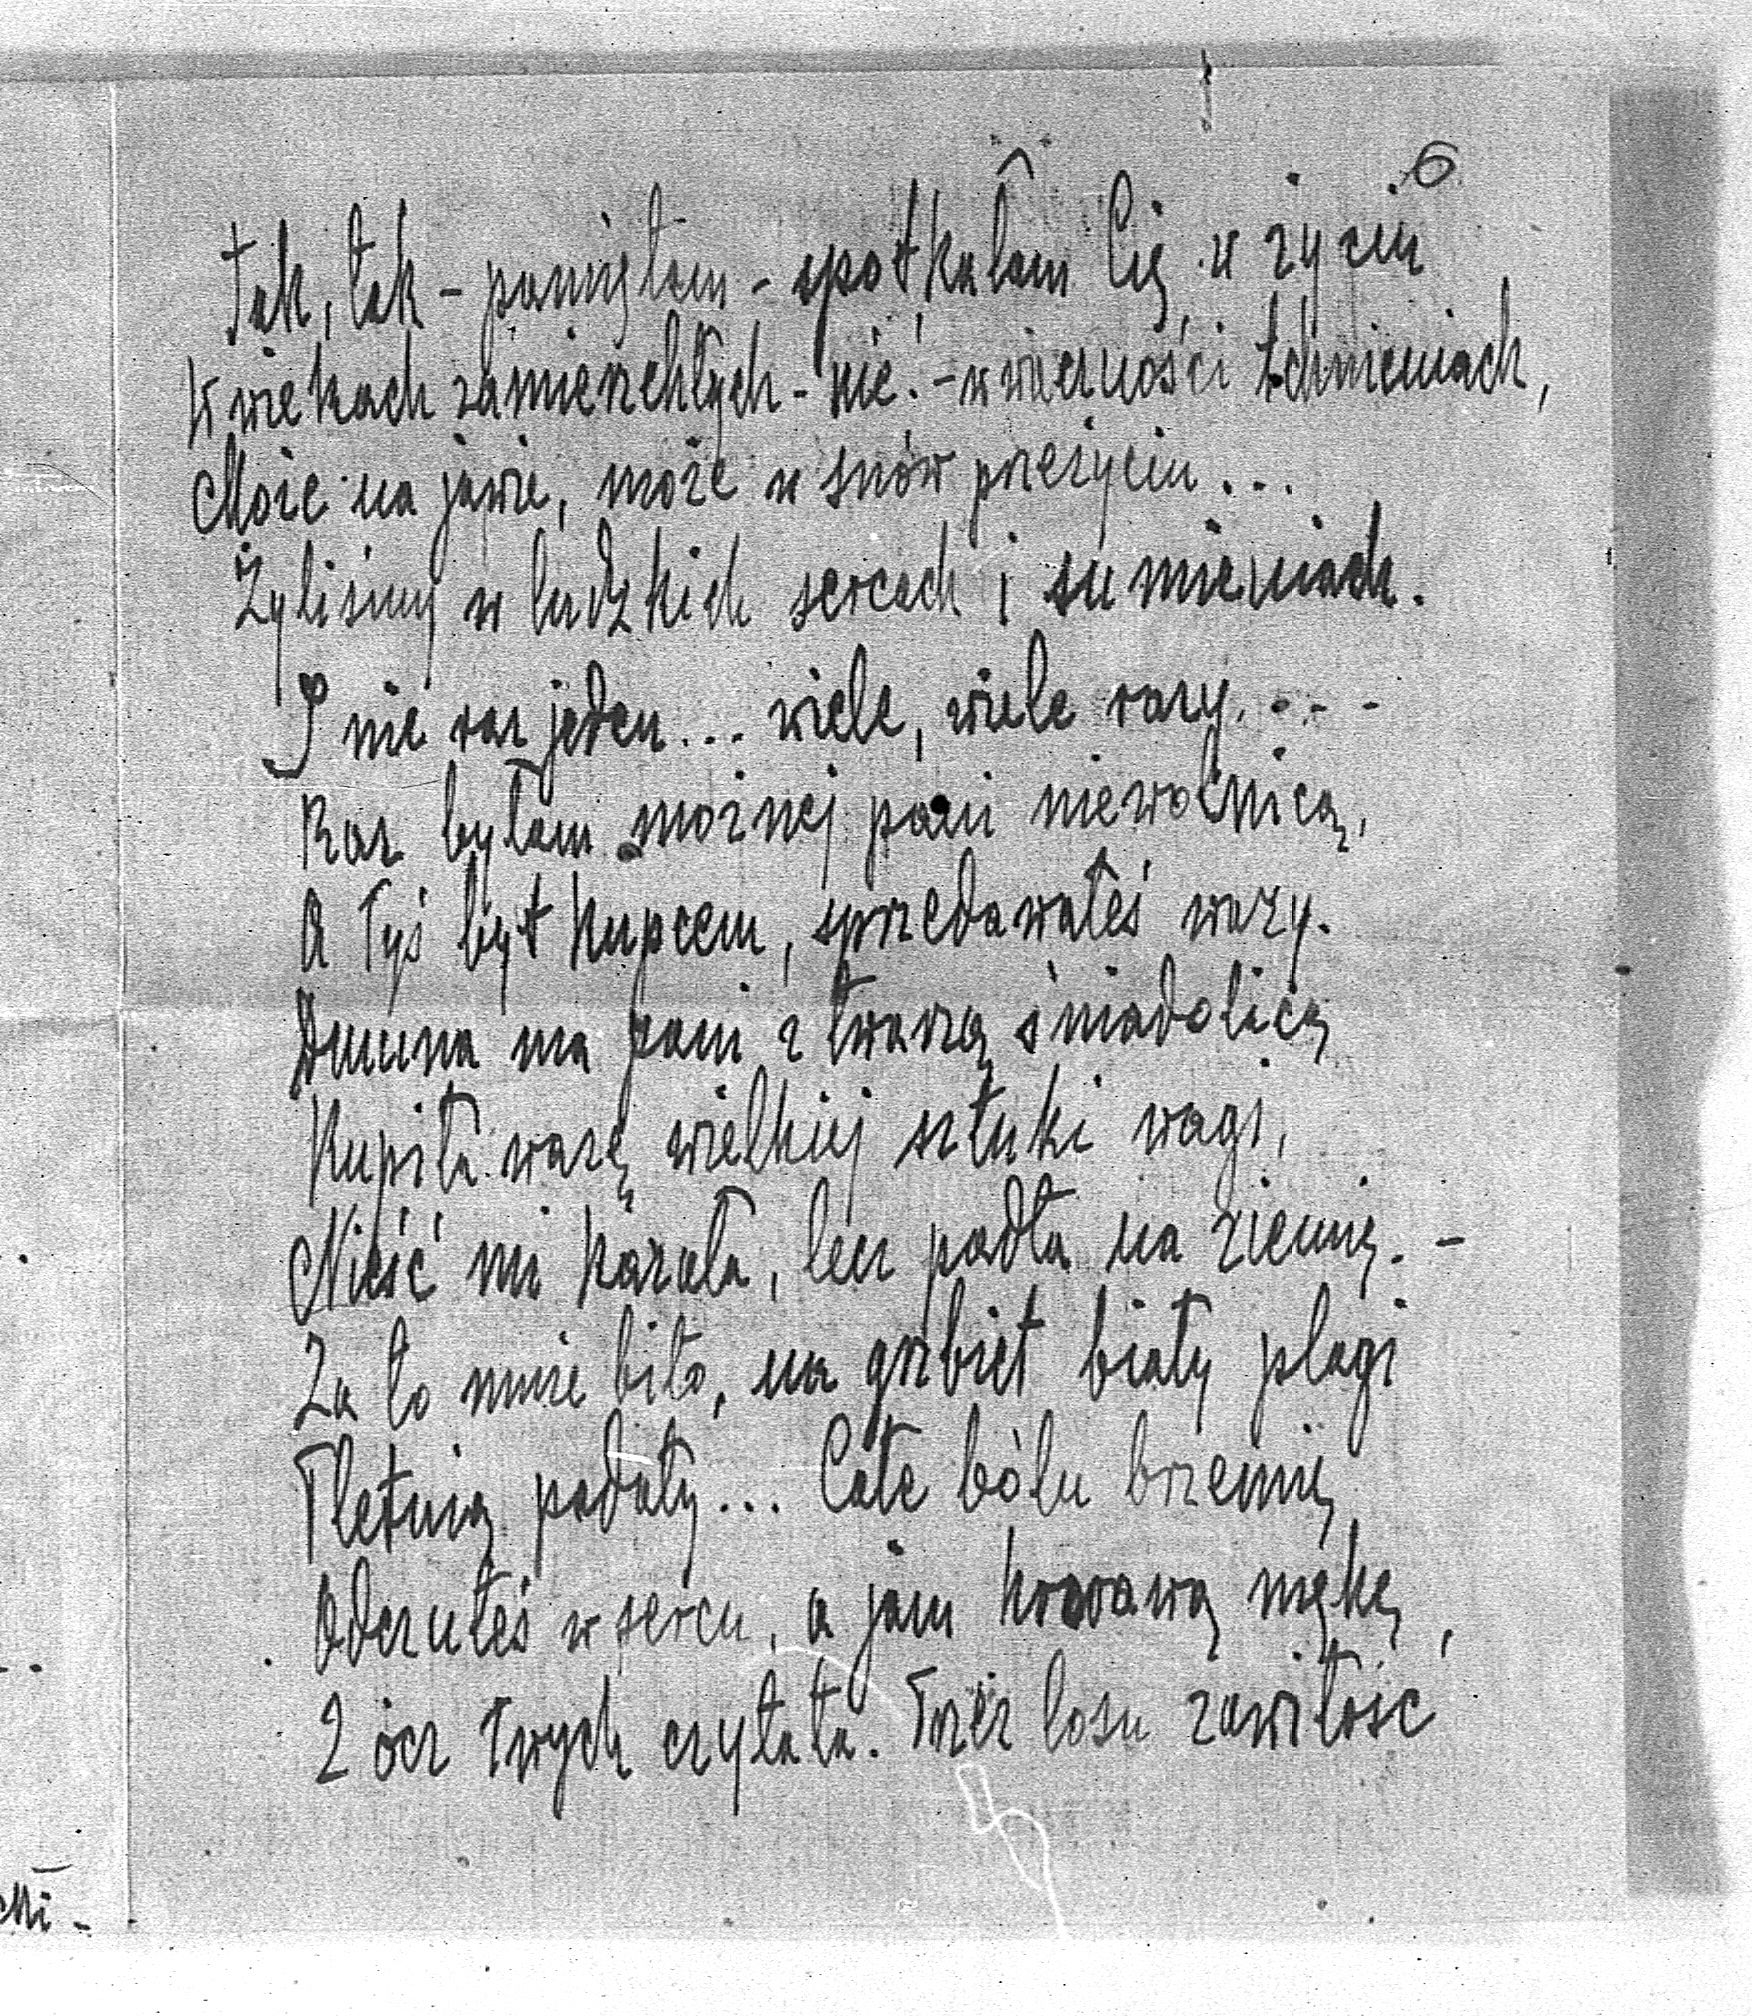 6
Tak, tak - pamiętam - spotkałam Cię w życiu
W wiekach zamierzchłych - nie! - w wieczności tchnieniach,
Może na jawie, może w snów przeżyciu...
Żyliśmy w ludzkich sercach i sumieniach.
I nie raz jeden... wiele, wiele razy....
Raz byłam możnej pani niewolnicą,
A Tyś był kupcem, sprzedawałeś wazy.
Dumna ma pani z twarzą śniadolicą
Kupiła wazę wielkiej sztuki wagi,
Nieść mi kazała, lecz padła na ziemię. -
Za to mnie bito, na grzbiet biały plagi
Pletnią padały... Całe bólu brzemię
Odczułeś w sercu, a jam krwawą mękę,
Z ócz Twych czytała. Przez losu zawiłość